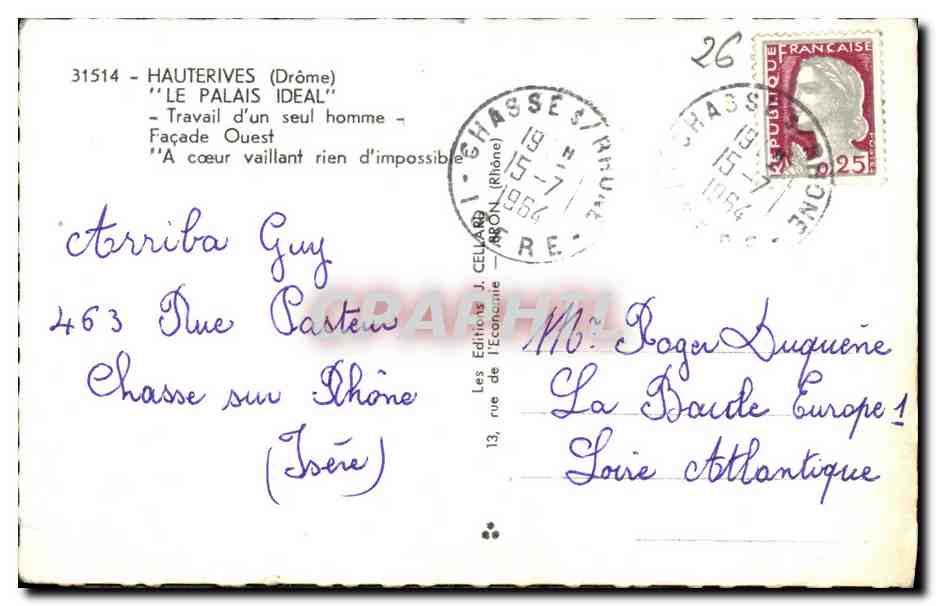 31514 - HAUTERIVES (Drôme)
"LE PALAIS IDEAL"
- Travail d'un seul homme -
Façade Ouest
"A cœur vaillant rien d'impossible
26
REPUBLIQUE FRANÇAISE
0,25
POSTES
CHASSE S/RHONE
19 H
15-7
1964
ISERE
CHASSE S/RHONE
19
15-7
1964
Arriba Guy
463 Rue Pasteur
Chasse sur Rhône
(Isére)
Les Editions J. CELLARD
13, rue de l'Economie — BRON (Rhône)
GRAPHIL
Mr. Roger Duquéne
La Baule Europe 1
Loire Atlantique